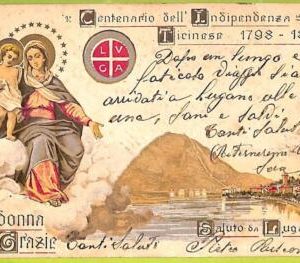 1º Centenario dell'Indipendenza
Ticinese 1798 - 18
LVGA
Dopo un lungo e
faticoso viaggio sia
arrivati a Lugano alle
una, sani e saldi.
Tanti Saluti
Sera
donna
Grazie
Saluto da Luga
Tanti Saluti
Pietro